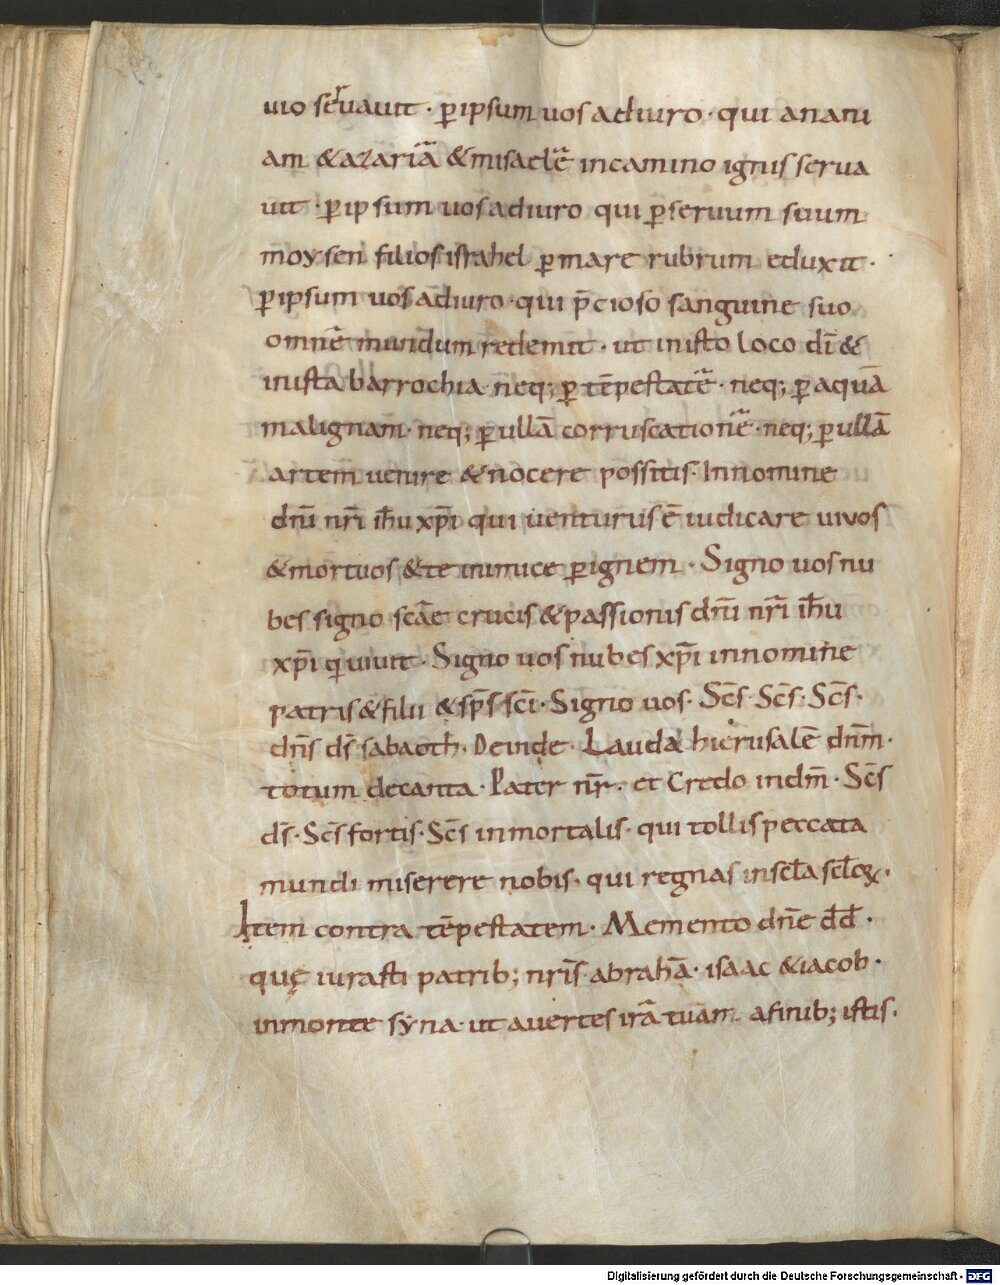 uio seruauit · p̄ ipsum uos adiuro · qui anani
am & azariā & misaelē in camino ignis serua
uit · p̄ ip sum uos adiuro qui p̄ seruum suum
moysen filios israhel p̄ mare rubrum eduxit ·
p̄ ipsum uos adiuro · qui p̄cioso sanguine suo
omnē mundum redemit · ut in isto loco dī &
in ista barrochia neq; p̄ tēpestatē · neq; p̄ aquā
malignam · neq; p̄ ullā corruscationē · neq; p̄ ullā
artem uenire & nocere possitis · In nomine
dn̄i nr̄i ih̄u xp̄i qui uenturus ē iudicare uiuos
& mortuos & te inimice p̄ ignem · Signo uos nu
bes signo sc̄ae crucis & passionis dn̄i nr̄i ih̄u
xp̄i q uiuit · Signo uos nubes xp̄i in nomine
patris & filii & sp̄s sc̄i · Signo uos · Sc̄s · Sc̄s · Sc̄s ·
dn̄s ds̄ sabaoth · Deinde · Lauda hierusalē dn̄m ·
totum decanta · Pater nr̄ · et Credo in dm̄ · Sc̄s
ds̄ · Sc̄s fortis · Sc̄s inmortalis · qui tollis peccata
mundi miserere nobis · qui regnas in sc̄la sc̄loꝝ ·
Item contra tēpestatem · Memento dn̄e dd̄ ·
quę iurasti patrib; nr̄is abrahā · isaac & iacob ·
in monte syna · ut auertes irā tuam a finib; istis ·
Digitalisierung gefördert durch die Deutsche Forschungsgemeinschaft - DFG